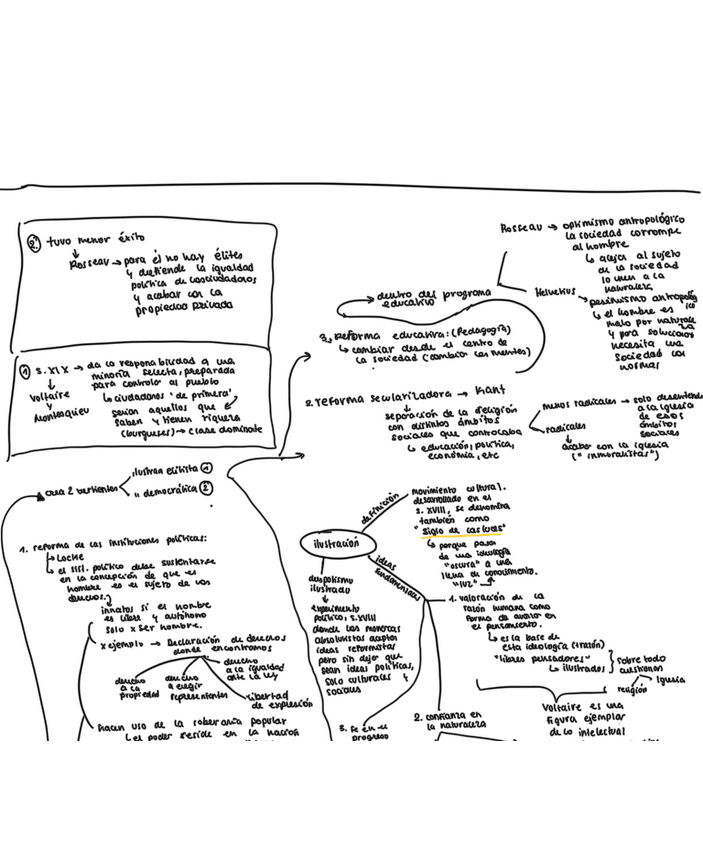 ② tuvo menor éxito
Rosseau → para él no hay élites
y defiende la igualdad
política de los ciudadanos
y acabar con la
propiedad privada
① S. XIX → da la responsabilidad a una
minoría selecta, preparada
para controlar al pueblo
Voltaire
y
Montesquieu
↳ ciudadanos "de primera"
serían aquellos que
saben y tienen riqueza
(burgueses) → clase dominante
crea 2 vertientes
ilustran elitista ①
" democrática ②
1. reforma de las instituciones políticas:
↳ Locke
↳ el sist. político debe sustentarse
en la concepción de que el
hombre es el sujeto de los
derechos.
innatos si el hombre
es libre y autónomo
solo x ser hombre.
x ejemplo → Declaración de derechos
donde encontramos
derecho
a la
propiedad
derecho
a elegir
representantes
derecho
a la igualdad
ante la ley
libertad
de expresión
hacen uso de la soberanía popular
↳ el poder reside en la nación
Rosseau → optimismo antropológico
la sociedad corrompe
al hombre
↳ alejar al sujeto
de la sociedad
lo unen a la
naturaleza
Helvetius → pesimismo antropológico
↳ el hombre es
malo por naturaleza
y para solucionar
necesita una
sociedad con
normas
→ dentro del programa
educativo
3. Reforma educativa: (Pedagogía)
↳ cambiar desde el centro de
la sociedad (cambiar las mentes)
2. reforma secularizadora → Kant
separación de la religión
con distintos ámbitos
sociales que controlaba
↳ educación, política,
economía, etc
menos radicales → solo desentende
a la iglesia
de esos
ámbitos
sociales
radicales
↓
acabar con la iglesia
("inmoralistas")
ilustración
definición
movimiento cultural.
desarrollado en el
s. XVIII, se denomina
también como
"siglo de las luces"
↳ porque pasa
de una ideología
"oscura" a una
llena de conocimiento.
"luz"
ideas
fundamentales
despotismo
ilustrado
↓
experimento
político, s. XVIII
donde los monarcas
absolutistas aceptan
ideas reformistas
pero sin dejar que
sean ideas políticas,
solo culturales y
sociales
1. valoración de la
razón humana como
forma de avance en
el pensamiento.
↳ es la base de
esta ideología (razón)
"libres pensadores"
↳ ilustrados
sobre todo
cuestionan
religión
Iglesia
Voltaire es una
figura ejemplar
de lo intelectual
2. confianza en
la naturaleza
3. Fe en el
progreso